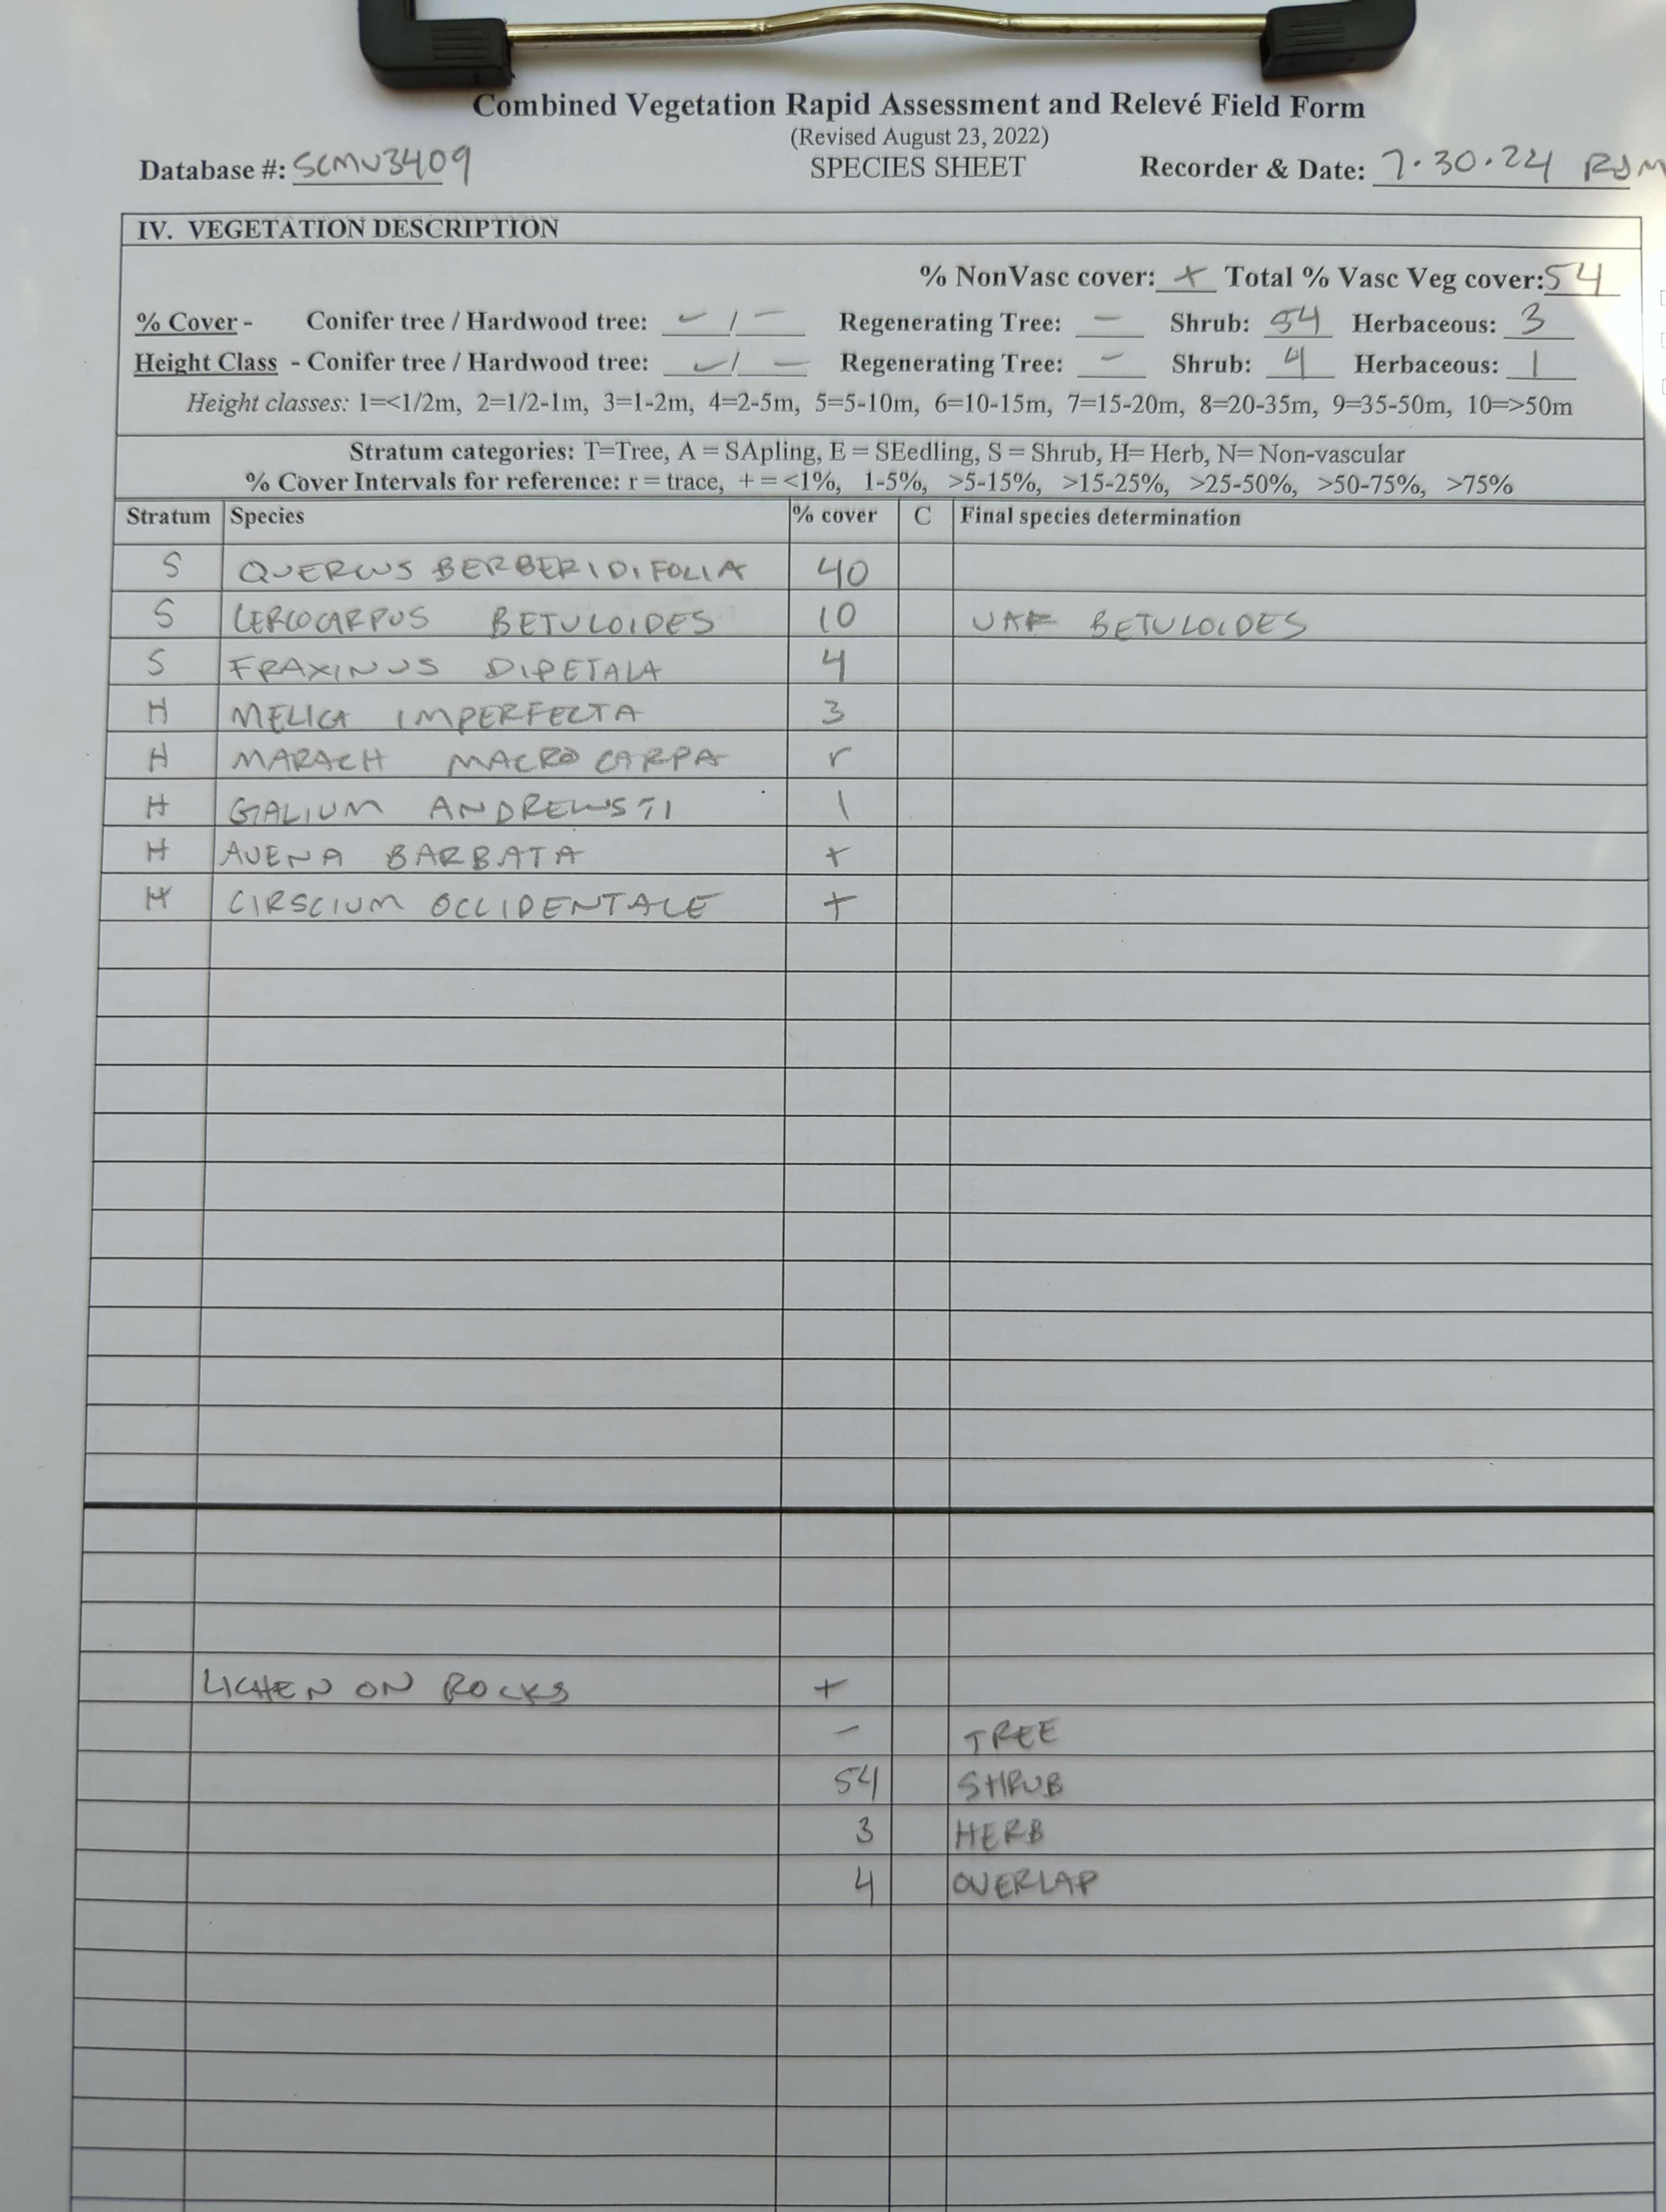 Combined Vegetation Rapid Assessment and Relevé Field Form
(Revised August 23, 2022)
Database #: SCMV3409 SPECIES SHEET Recorder & Date: 7.30.24 RJM
IV. VEGETATION DESCRIPTION
% NonVasc cover: + Total % Vasc Veg cover: 54
% Cover - Conifer tree / Hardwood tree: – / – Regenerating Tree: – Shrub: 54 Herbaceous: 3
Height Class - Conifer tree / Hardwood tree: – / – Regenerating Tree: – Shrub: 4 Herbaceous: 1
Height classes: 1=<1/2m, 2=1/2-1m, 3=1-2m, 4=2-5m, 5=5-10m, 6=10-15m, 7=15-20m, 8=20-35m, 9=35-50m, 10=>50m
Stratum categories: T=Tree, A = SApling, E = SEedling, S = Shrub, H= Herb, N= Non-vascular
% Cover Intervals for reference: r = trace, + = <1%, 1-5%, >5-15%, >15-25%, >25-50%, >50-75%, >75%
Stratum Species % cover C Final species determination
S QUERCUS BERBERIDIFOLIA 40
S CERCOCARPUS BETULOIDES 10 VAR BETULOIDES
S FRAXINUS DIPETALA 4
H MELICA IMPERFECTA 3
H MARACH MACROCARPA r
H GALIUM ANDREWSII 1
H AVENA BARBATA +
H CIRSCIUM OCCIDENTALE +
LICHEN ON ROCKS +
– TREE
54 SHRUB
3 HERB
4 OVERLAP